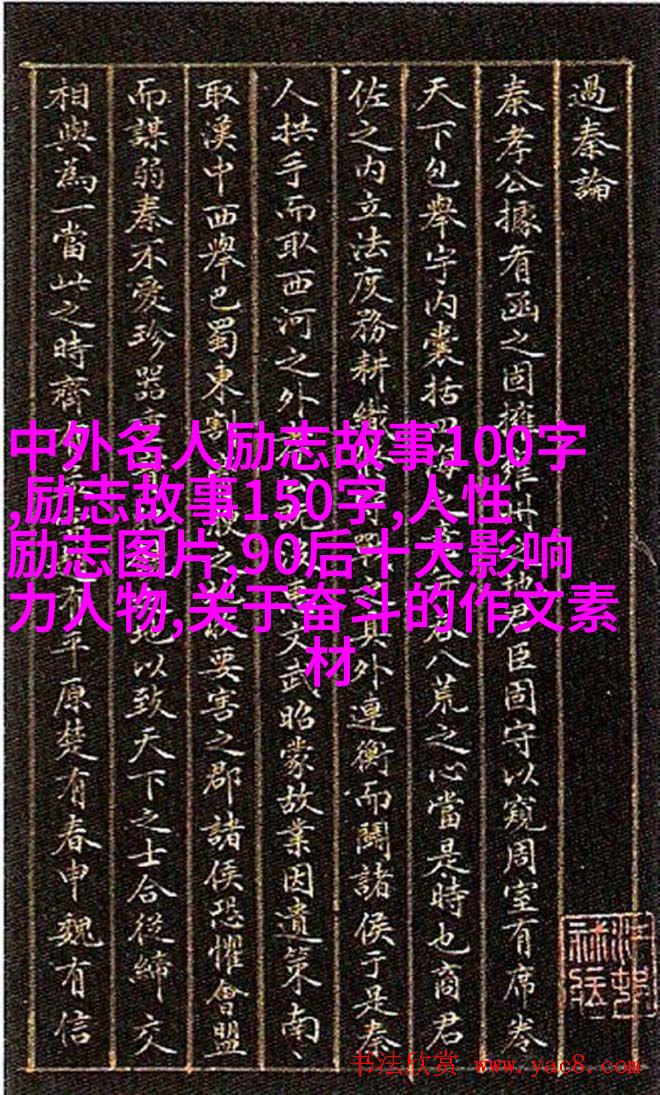 過秦論
秦孝公據有函之固擁地君臣固守以窺周室有席卷
天下包舉宇內囊括四八荒之心當是時也商君
佐之內立法度務耕織其外連衡而鬪諸侯于是秦
人拱手而取西河之外文武昭蒙故業因遺策南、
取漢中西舉巴蜀東割要害之郡諸侯恐懼會盟
而謀弱秦不愛珍器地以致天下之士合從締交
相與為一當此之時齊平原楚有春申魏有信
中外名人励志故事100字
,励志故事150字,人性
励志图片,90后十大影响
力人物,关于奋斗的作文素
材
书法欣赏 www.yac8.com